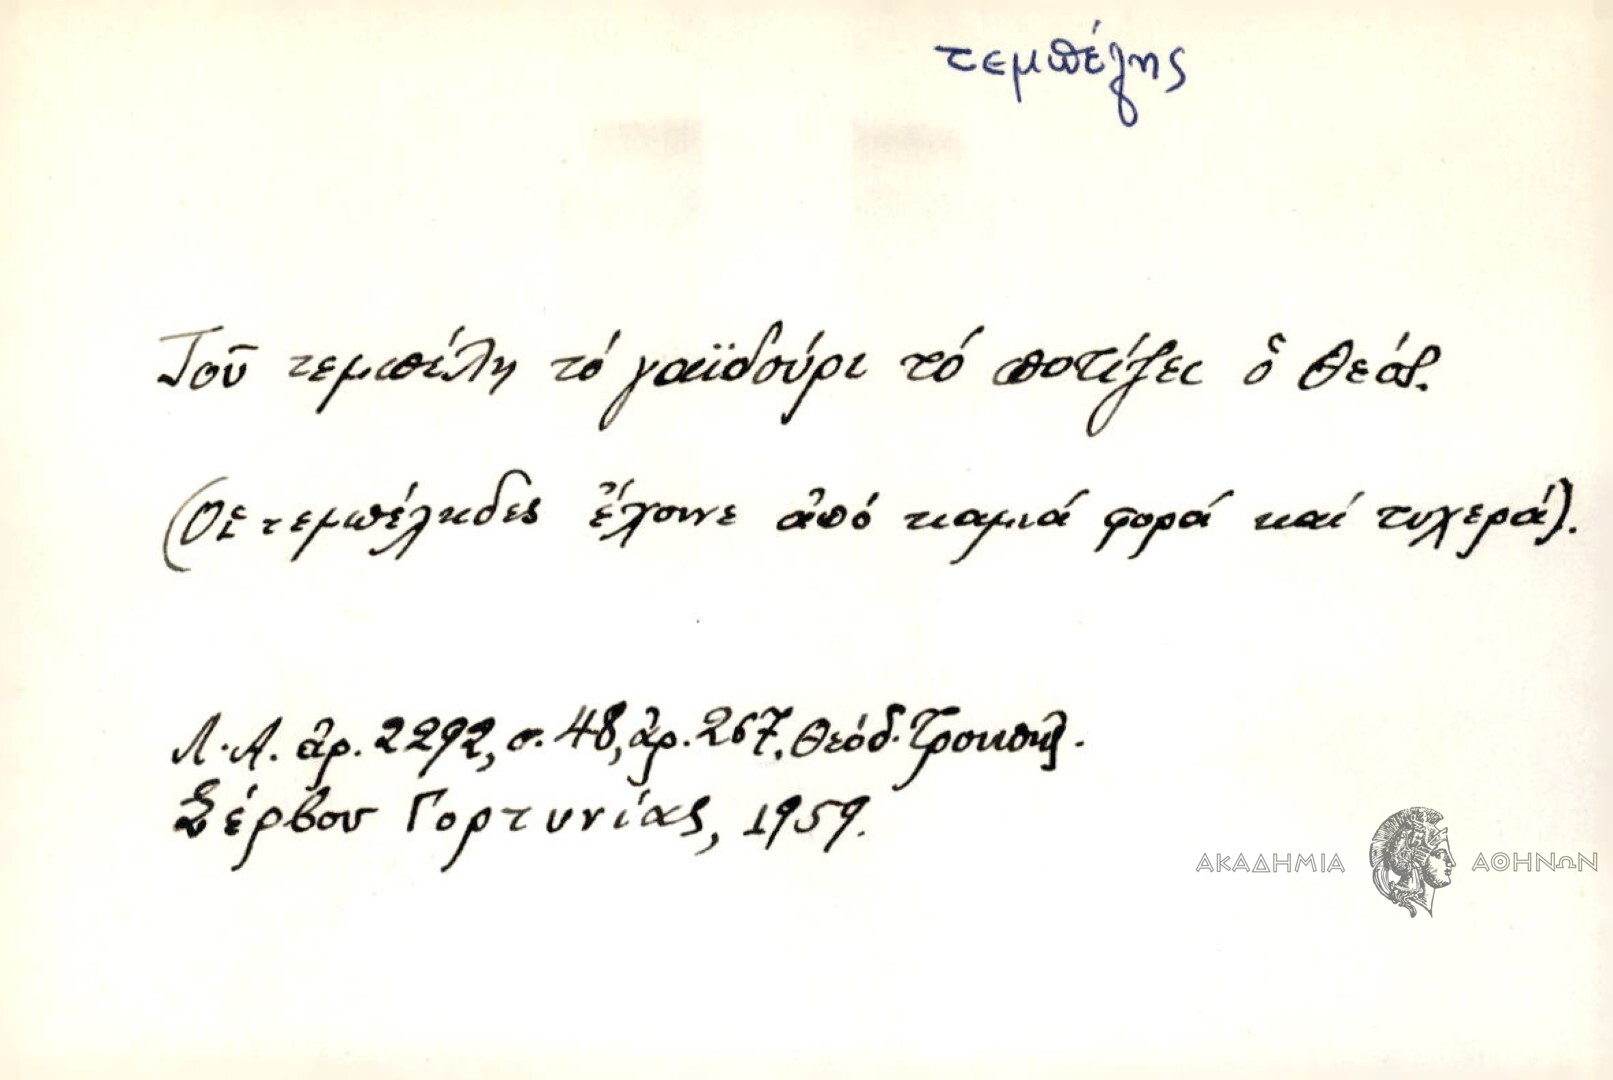 τεμπέλης
Τοῦ τεμπέλη τό γαϊδούρι τό ποτίζει ὁ Θεός.
(Οι τεμπέληδες ἔχουνε ἀπό καμιά φορά καί τυχερά).
Λ.Α. ἀρ. 2292, σ. 48, ἀρ. 267, Θεόδ. Τρουπῆς.
Σέρβου Γορτυνίας, 1959.
ΑΚΑΔΗΜΙΑ ΑΘΗΝΩΝ